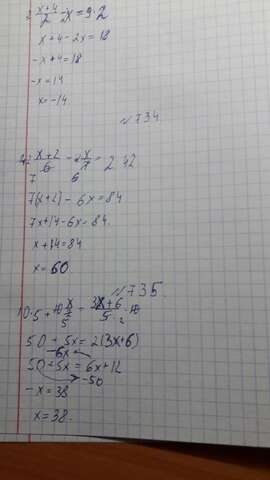 2· (x+4)/2 - 2·x = 9·2
x+4-2x=18
-x+4=18
-x=14
x=-14
№734
42· (x+2)/6 - 42 x/7 = 2·42
7(x+2) - 6x = 84
7x+14-6x=84
x+14=84
x=60
№735.
10·5+10 x/5 = (3x+6)/5 ·10
50 + 5x = 2(3x+6)
-6x
50+5x = 6x+12
-50
-x=38
x=38.